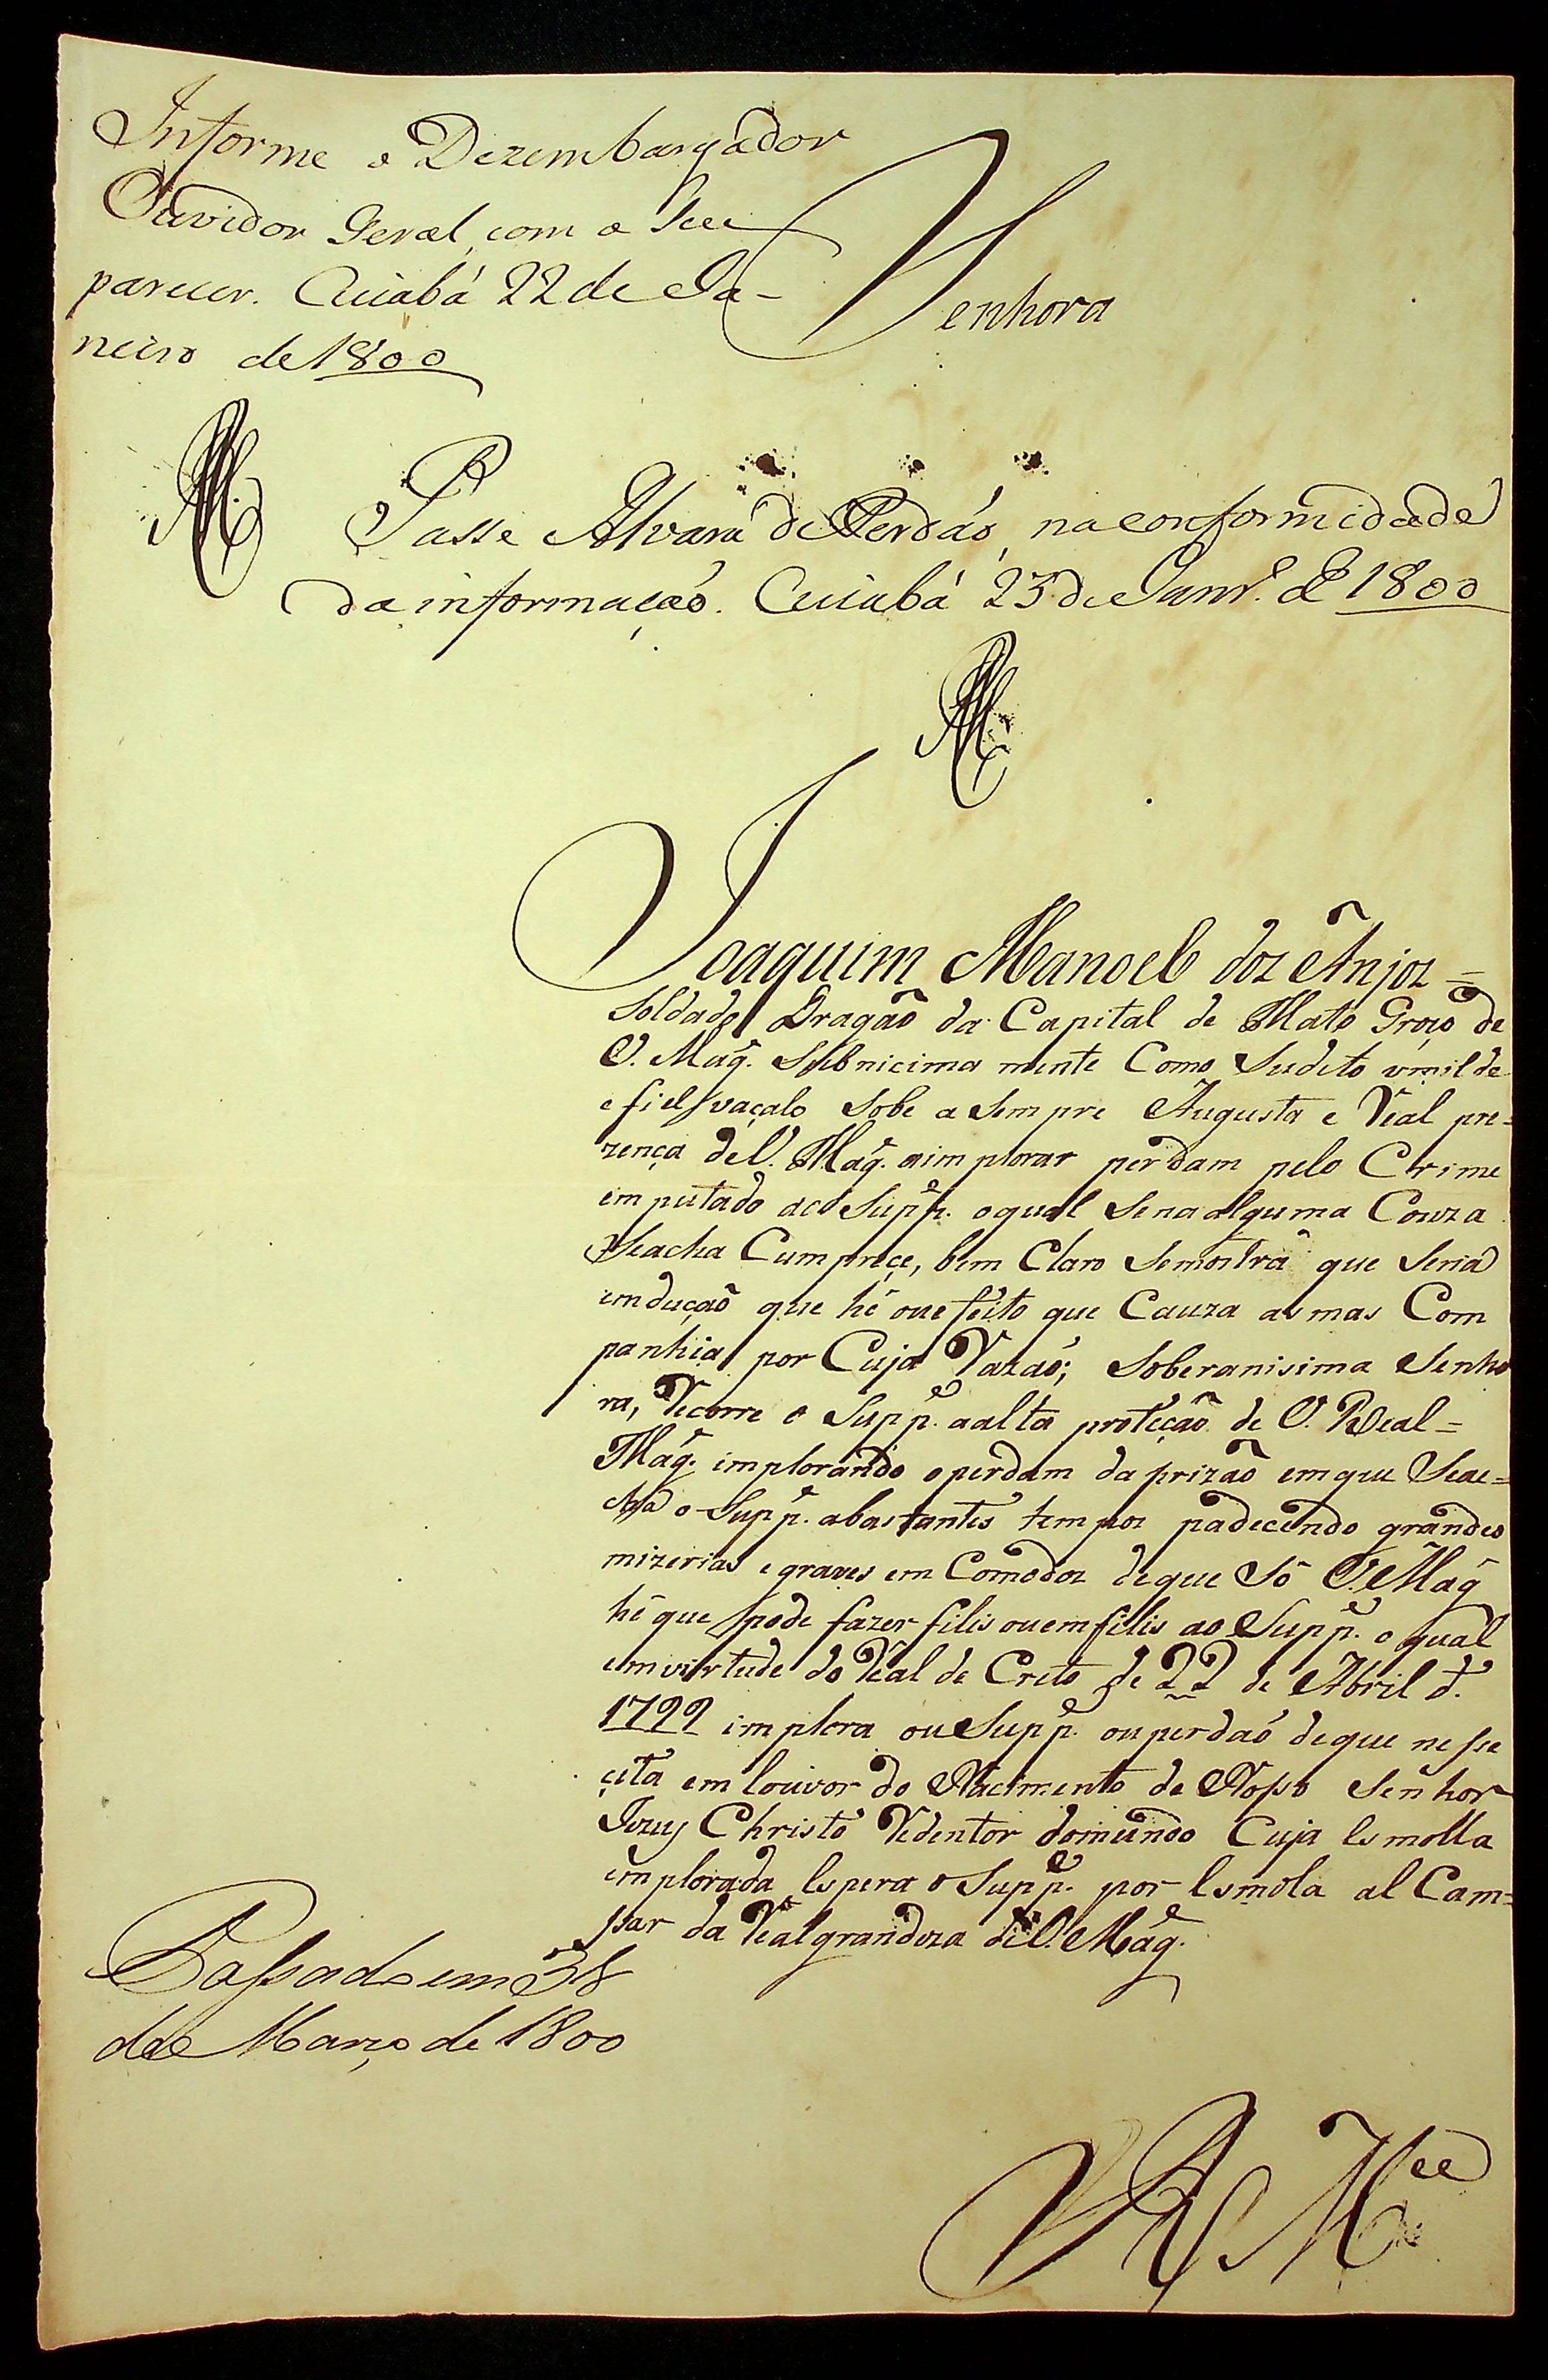 Informe o Dezembargador
Ouvidor Geral, com o seu
parecer. Cuiabá 22 de Ja-
neiro de 1800
Senhora
Passe Alvará de Perdaõ, na conformidade
da informaçaõ. Cuiabá 23 de Janr.º de 1800
Joaquim Manoel doz Anjoz =
Soldado Dragaõ da Capital de Mato Groço de
V. Mag.e Subnicima mente Como Sudito umilde
e fiel vaçalo sobe a sempre Augusta e Real pre=
zença de V. Mag.e aimplorar perdam pelo Crime
imputado ao Supp.e oqual se na alguma Couza
Seacha Cumpreçe, bem Claro Semostra que Seria
induçaõ que hé oue feito que Cauza as mas Com
panhia por Cuja Razaõ; Soberanisima Senho
ra, Recorre o Supp.e aalta proteçaõ de V. Real=
Mag.e implorando operdam da prizaõ emque Seac=
cha o Supp.e abastantes tempoz padecendo grandes
mizerias e graves em Comodoz deque Só V. Mag.e
hé que pode fazer filis ouemfilis ao Supp.e o qual
emvirtude do Real de Creto de 22 de Abril d.
1799 implora ou Supp.e ouperdaõ deque nesse
çita em louvor do Nacimento de Nosso Senhor
Jezus Christo Redentor domundo Cuja Esmolla
implorada Espera o Supp.e por Esmola al Cam=
sar da Real grandeza de V. Mag.e
Passado em 28
de Março de 1800
E R M.ce